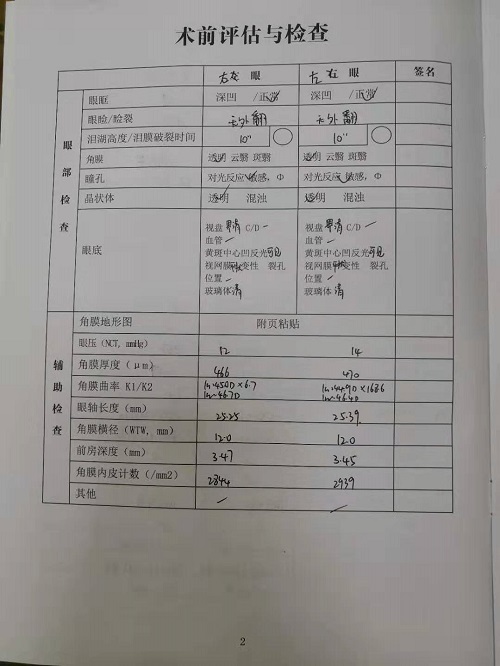 术前评估与检查
右 眼 左 眼 签名
眼部检查
眼眶 深凹 /正常 深凹 /正常
眼睑/睑裂 无外翻 无外翻
泪湖高度/泪膜破裂时间 10" 10"
角膜 透明 云翳 斑翳 透明 云翳 斑翳
瞳孔 对光反应 敏感, Φ 对光反应 敏感, Φ
晶状体 透明 混浊 透明 混浊
眼底
视盘 界清 C/D — 视盘 界清 C/D —
血管 — 血管 —
黄斑中心凹反光 可见 黄斑中心凹反光 可见
视网膜 变性 裂孔 视网膜 变性 裂孔
位置 — 位置 —
玻璃体 清 玻璃体 清
辅助检查
角膜地形图 附页粘贴
眼压 (NCT, mmHg) 12 14
角膜厚度 (μm) 466 470
角膜曲率 K1/K2
眼轴长度 (mm) 25.25 25.39
角膜横径 (WTW, mm) 12.0 12.0
前房深度 (mm) 3.47 3.45
角膜内皮计数 (/mm2) 2844 2939
其他 — —
2